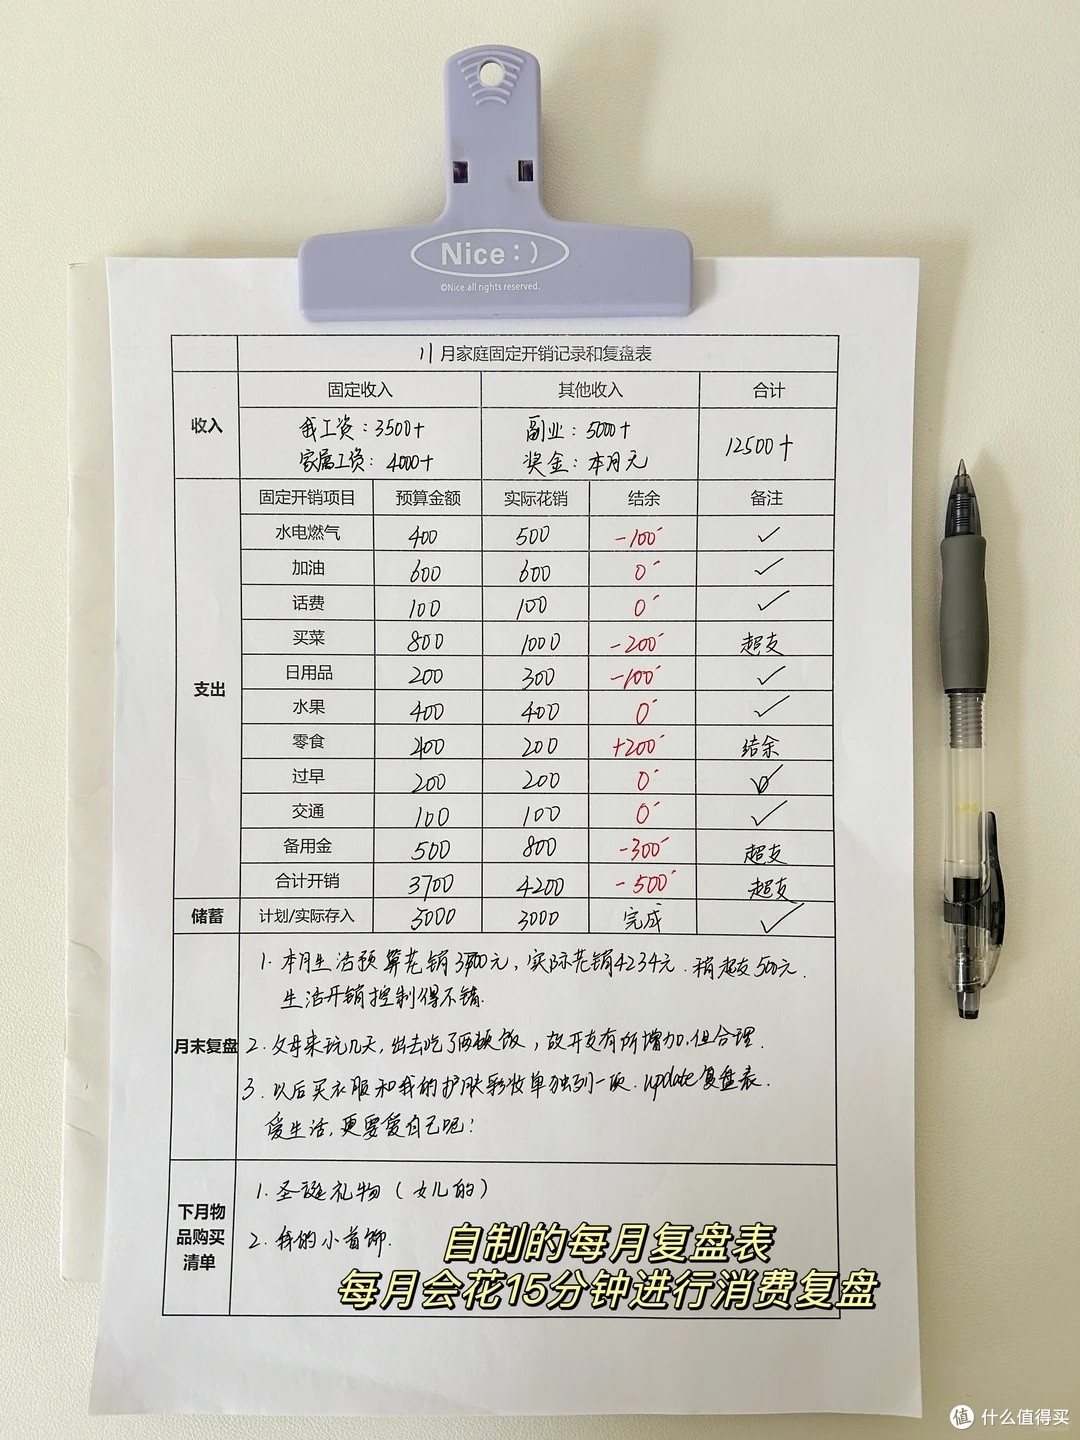 Nice:)
©Nice.all rights reserved.
11月家庭固定开销记录和复盘表
收入 固定收入 其他收入 合计
我工资：3500+ 副业：5000+ 12500+
家属工资：4000+ 奖金：本月无
支出 固定开销项目 预算金额 实际花销 结余 备注
水电燃气 400 500 -100 ✓
加油 600 600 0 ✓
话费 100 100 0 ✓
买菜 800 1000 -200 超支
日用品 200 300 -100 ✓
水果 400 400 0 ✓
零食 400 200 +200 结余
过早 200 200 0 ✓
交通 100 100 0 ✓
备用金 500 800 -300 超支
合计开销 3700 4200 -500 超支
储蓄 计划/实际存入 3000 3000 完成 ✓
月末复盘
1. 本月生活预算花销3700元，实际花销4234元．稍超支500元．
生活开销控制得不错．
2. 父母来玩几天，出去吃了两顿饭，故开支有所增加，但合理．
3. 以后买衣服和我的护肤彩妆单独列一项．update复盘表．
爱生活，更要爱自己呢！
下月物品购买清单
1. 圣诞礼物（女儿的）
2. 我的小首饰．
自制的每月复盘表
每月会花15分钟进行消费复盘
值 什么值得买